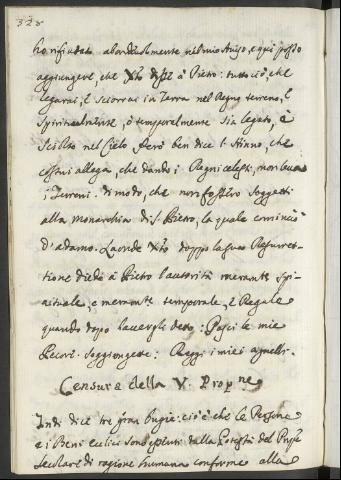 328
ho rifiutato abondantemente nel mio Aviso, e qui posso
aggiungere, che Xto disse à Pietro: tutto ciò, che
legarai, è sciorrai in Terra nel Regno terreno, è
spiritualmente, ò temporalmente sia legato, è
sciolto nel Cielo. Però ben dice l'Hinno, che
essoni allega, che dando i Regni celesti, non leva
i Terreni. di modo, che non fossero soggetti
alla monarchia di S. Pietro, la quale cominciò
d'adamo. Laonde Xto doppo la sua Resurret-
tione diede à Pietro l'autorità meramte spi-
rituale, e meramte temporale, è Regale
quando dopo haverli detto: Pasci le mie
Pecore. soggiongesse: Reggi i miei agnelli.
Censura della V. Propne
Indi dice tre gran bugie: cioè che le Persone
e i Beni ecclici sono esenti dalla Potestà del Prnpe
secolare di ragione humana conforme alla